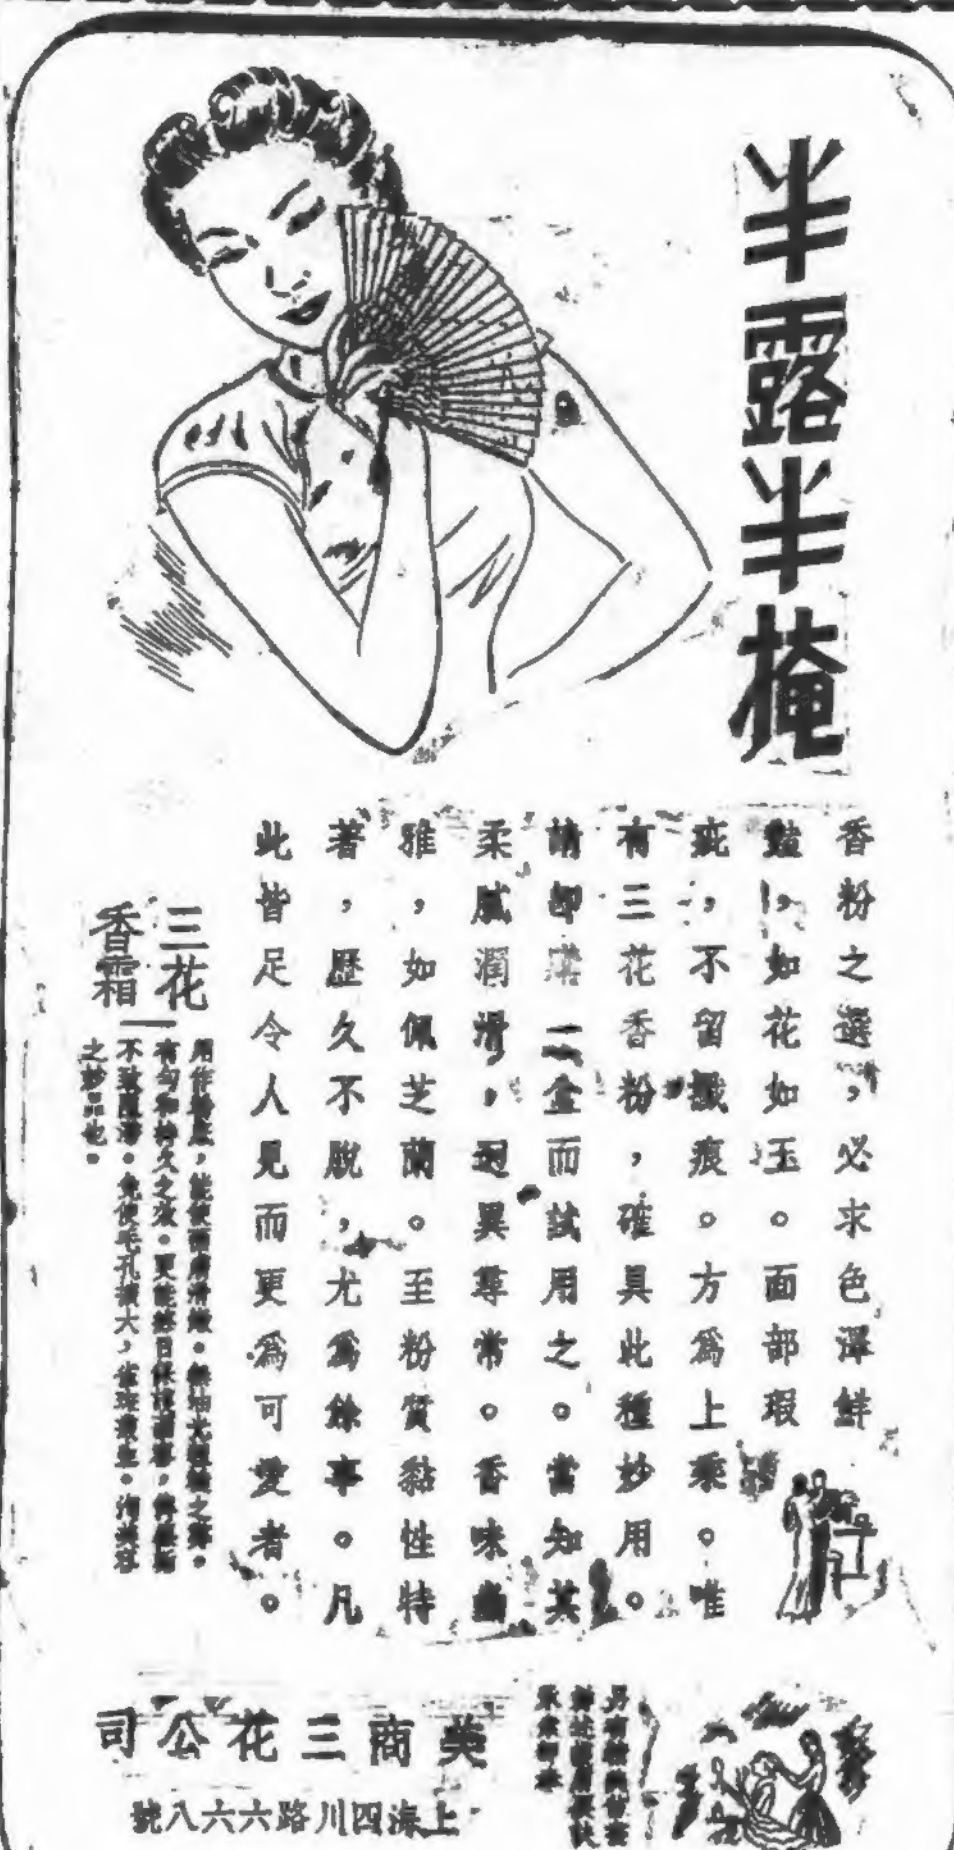 半露半掩
香粉之選，必求色澤鮮
豔，如花如玉。面部瑕
疵，不留纖痕。方爲上乘。唯
有三花香粉，確具此種妙用。
請卽購一盒而試用之。當知其
柔膩潤滑，迥異尋常。香味幽
雅，如佩芝蘭。至粉質黏性特
著，歷久不脫，尤爲餘事。凡
此皆足令人見而更爲可愛者。
三花
香霜
用作粉底，能使面膚滑嫩。無油光之弊。
有勻和持久之效。更能終日保護
不致。免使毛孔擴大，生。洵美容
之妙品也。
美商三花公司
上海四川路六六八號